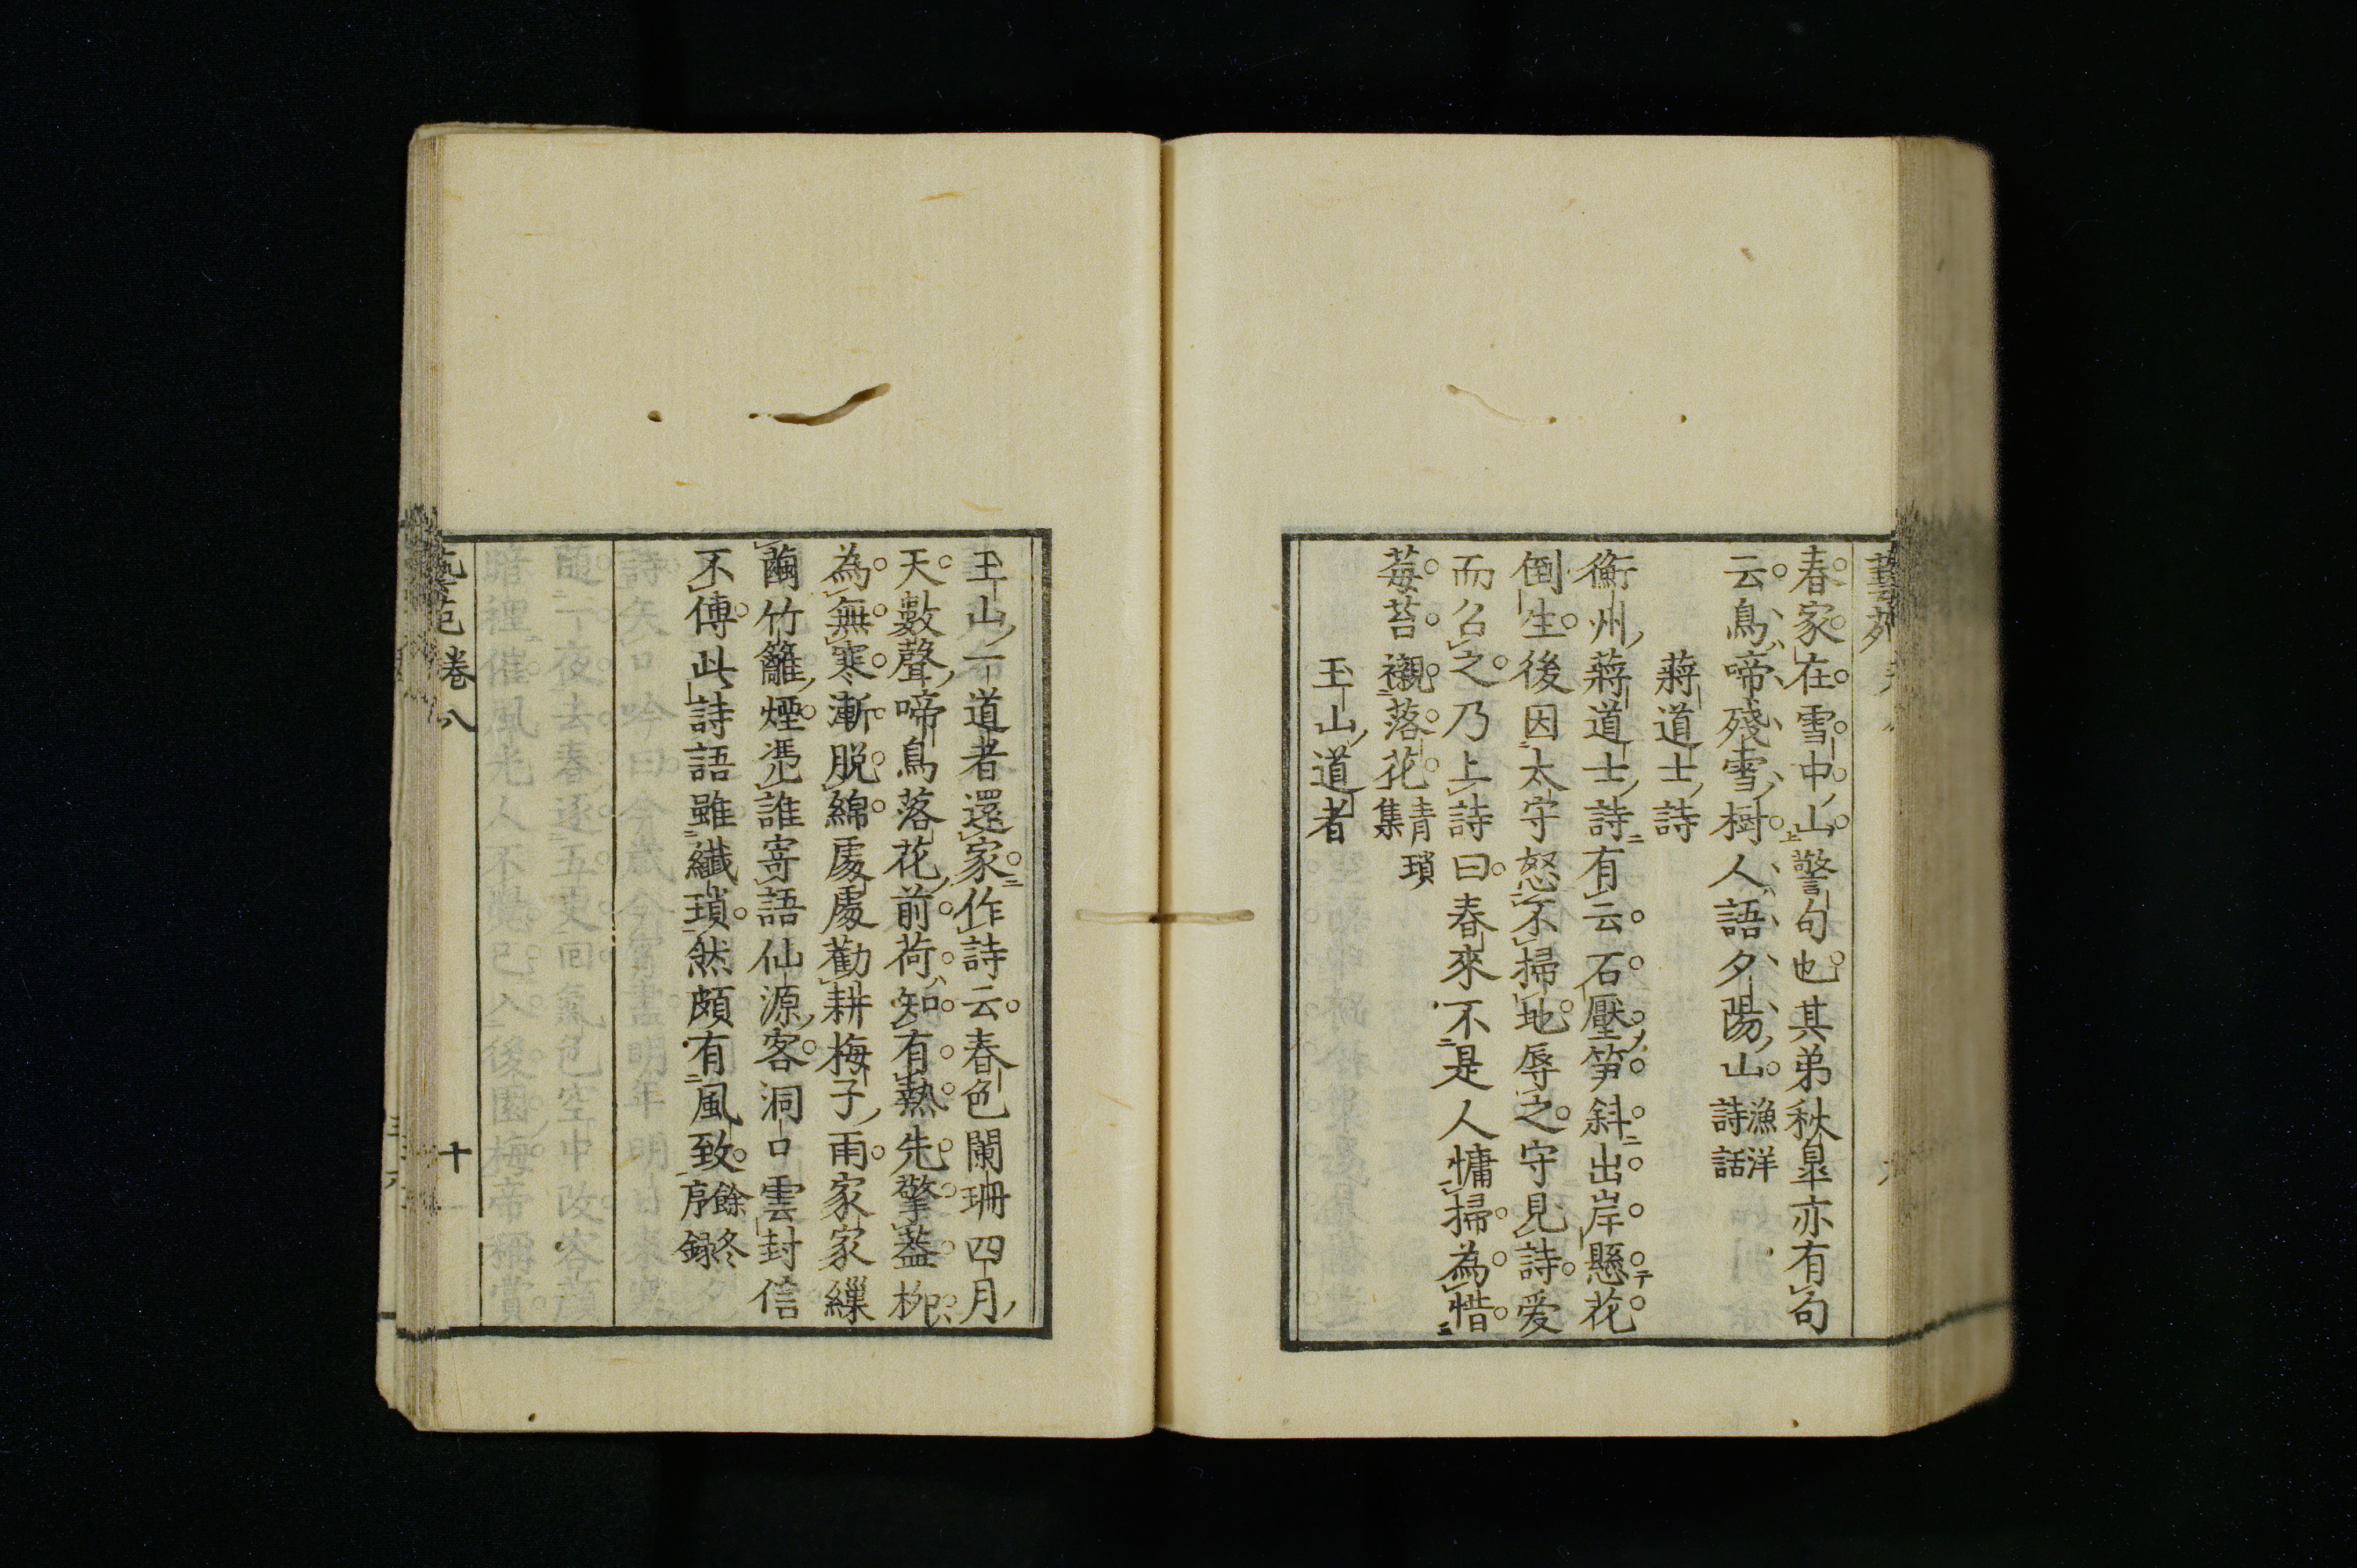 春家在雪中山警句也其弟秋皐亦有句
云鳥啼殘雪樹人語夕陽山漁洋詩話
蔣道士詩
衡州蔣道士詩有云石壓笋斜出岸懸花
倒生後因太守怒不掃地辱之守見詩愛
而召之乃上詩曰春來不是人慵掃為惜
莓苔襯落花青瑣集
玉山道者
玉山一道者還家作詩云春色闌珊四月
天數聲啼鳥落花前荷知有熱先擎蓋柳
為無寒漸脫綿處處勸耕梅子雨家家繅
繭竹籬煙憑誰寄語仙源客洞口雲封信
不傳此詩語雖纎瑣然頗有風致餘冬序録
卷八
十